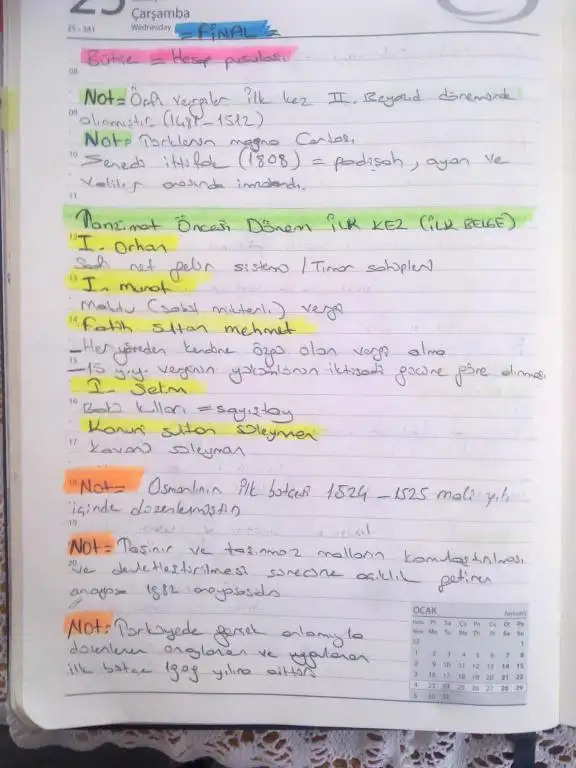 25
Çarşamba
Wednesday
25 - 341
= FİNAL =
Bütçe = Hesap pusulası
08
Not= Örfi vergiler ilk kez II. Beyazıd döneminde
09
alınmıştır (1481-1512)
Not= Türklerin magna Cartası
10
Senedi ittifak (1808) = padişah, ayan ve
valiler arasında imzalandı.
11
Tanzimat Öncesi Dönem İLK KEZ (İLK BELGE)
12
I. Orhan
Safi net gelir sistemi / Timar sahipleri
13
I. murat
maktu (sabit miktarlı) vergi
14
Fatih Sultan mehmet
- Her yöreden kendine özgü olan vergi alma
15
- 15 y.y. verginin yükümlünün iktisadi gücüne göre alınması
I. Selim
16
Bab kulları = sayıştay
Kanuni sultan süleyman
17
Kavani süleyman
18
Not= Osmanlının ilk bütçesi 1524 - 1525 mali yılı
içinde düzenlenmiştir
19
Not= Taşınır ve taşınmaz malların kamulaştırılması
20
ve devletleştirilmesi sürecine açıklık getiren
anayasa 1982 anayasasıdır
Not: Türkiyede gerçek anlamıyla
düzenlenen onaylanan ve uygulanan
ilk bütçe 1909 yılına aittir
OCAK January
Hafta Pt Sa Ça Pe Cu Ct Pz
Week Mo Tu We Th Fr Sa Su
52 1
1 2 3 4 5 6 7 8
2 9 10 11 12 13 14 15
3 16 17 18 19 20 21 22
4 23 24 25 26 27 28 29
5 30 31